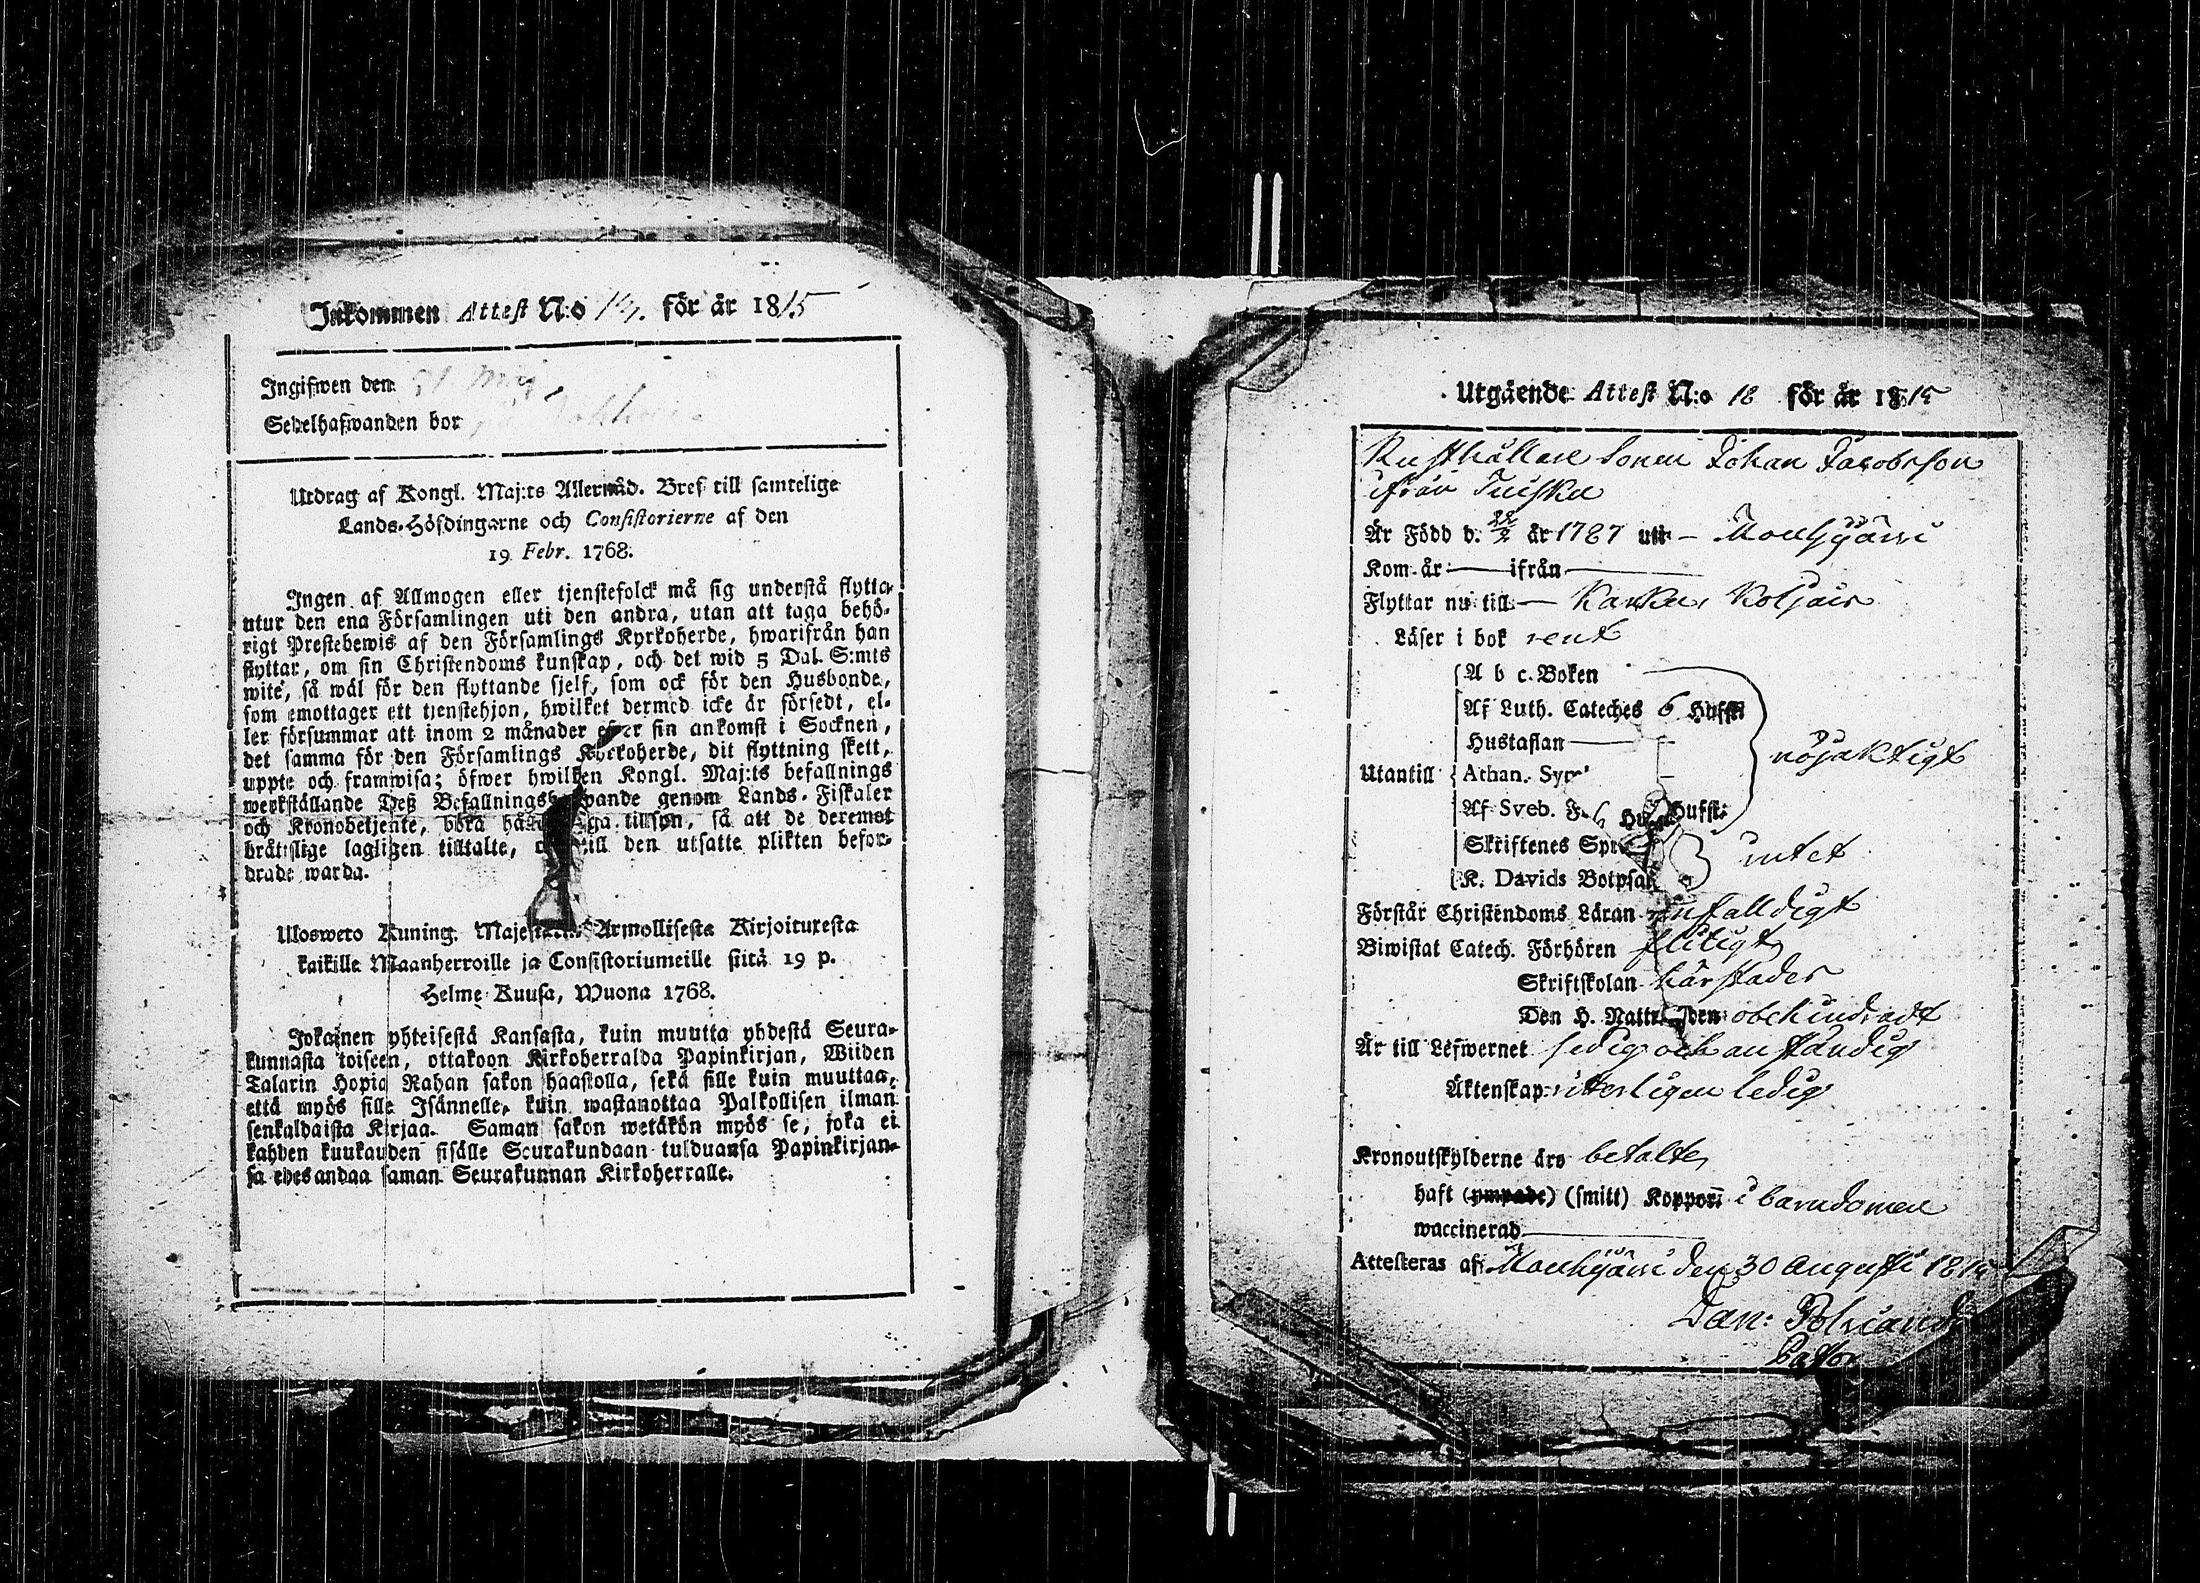 Inkommen Attest N:o för år 1815
Ingifwen den 31. Maj
Sedelhafwanden bor
Utdrag af Kongl. Maj:ts Allernåd. Bref till samtelige
Lands-Höfdingarne och Consistorierne af den
19 Febr. 1768.
Ingen af Allmogen eller tjenstefolck må sig understå flytta
utur den ena Församlingen uti den andra, utan att taga behö-
rigt Prestebewis af den Församlings Kyrkoherde, hwarifrån han
flyttar, om sin Christendoms kunskap, och det wid 5 Dal. S:mts
wite, så wäl för den flyttande sjelf, som ock för den Husbonde,
som emottager ett tjenstehjon, hwilket dermed icke är försedt, el-
ler försummar att inom 2 månader efter sin ankomst i Socknen,
det samma för den Församlings Kyrkoherde, dit flyttning skett,
uppte och framwisa; öfwer hwilken Kongl. Maj:ts befallnings
werkställande Deß Befallningshafwande genom Lands-Fiskaler
och Kronobetjente, böra hafwa noga tillsyn, så att de deremot
bråtslige lagligen tilltalte, och till den utsatte plikten befor-
drade warda.
Ulosweto Kuning. Majestetin Armollisesta Kirjoituresta
kaikille Maanherroille ja Consistoriumeille siitä 19 p.
Helme Kuusa, Wuona 1768.
Jokainen yhteisestä Kansasta, kuin muutta yhdestä Seura-
kunnasta toiseen, ottakoon Kirkoherralda Papinkirjan, Wiiden
Talarin Hopia Rahan sakon haastolla, sekä sille kuin muuttaa,
että myös sille Isännelle, kuin wastanottaa Palkollisen ilman
senkaldaista Kirjaa. Saman sakon wetäkön myös se, joka ei
kahden kuukauden sisälle Seurakundaan tulduansa Papinkirjan-
sa edesandaa saman Seurakunnan Kirkoherralle.
Utgående Attest N:o 18 för år 1815
Rusthållare Sonen Johan Jacobsson
ifrån Tuiska
Är Född d. 22/2 år 1787 uti Mouhijärvi
Kom år ifrån
Flyttar nu till Karku,
Läser i bok rent
A b c. Boken
Af Luth. Cateches 6 Hufst:
Hustaflan
Utantill Athan. Sym
nöjaktigt
Af Sveb. F. Hufst:
Skriftenes Spr
intet
K. Davids Botpsal
Förstår Christendoms Läran enfalldigt
Biwistat Catech. Förhören flitigt
Skriftskolan härstädes
Den H. Nattwarden obehindradt
Är till Lefwernet sedig och anständig
Äktenskap witterligen ledig
Kronoutskylderne äro betalte
haft (ympade) (smitt) Koppor i barndomen
waccinerad
Attesteras af Mouhijärvi den 30 Augusti 1815
Dan: Polviander
Pastor